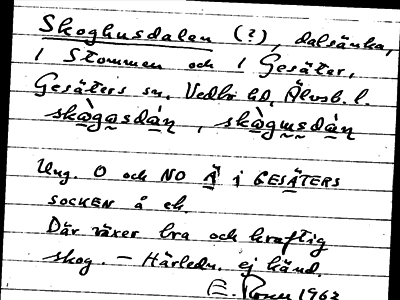 Skoghusdalen (?), dalsänka,
i Stommen och i Gesäter,
Gesäters sn, Vedbo hd, Älvsb. l.
skògasdàn, skògusdàn
Ung. O och NO Å i GESÄTERS
SOCKEN å ek.
Där växer bra och kraftig
skog. - Härledn. ej känd.
E. 1962